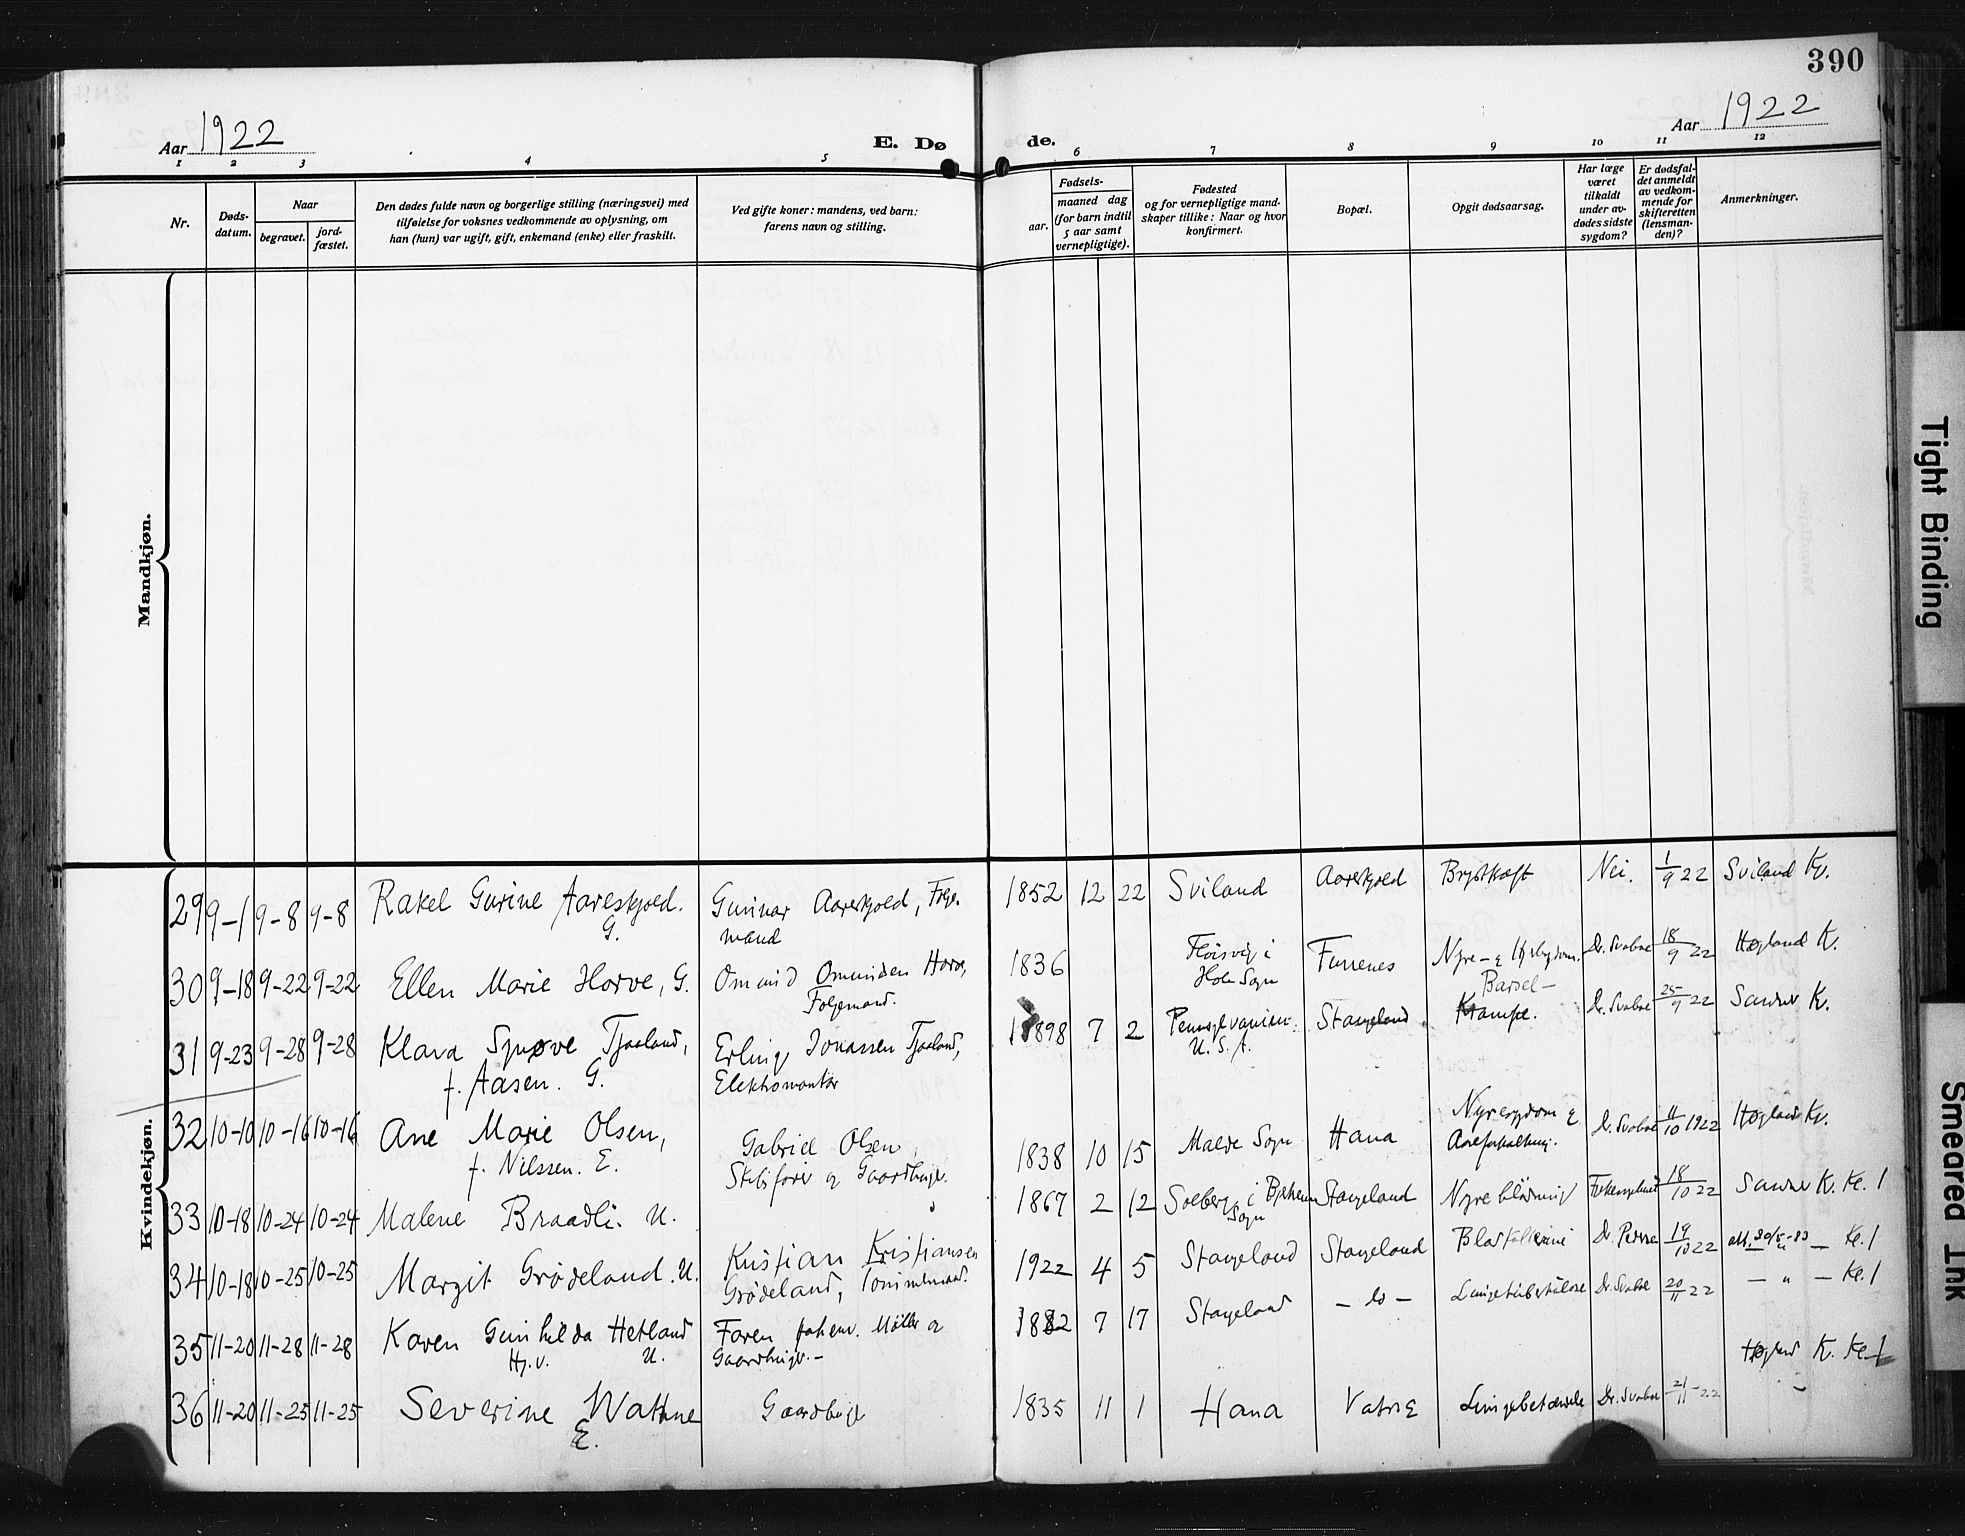 390
Aar 1922
E. Dø
de.
Aar 1922
1 2 3 4 5 6 7 8 9 10 11 12
Nr.
Døds-
datum.
Naar
begravet.
jord-
fæstet.
Den dødes fulde navn og borgerlige stilling (næringsvei) med
tilføielse for voksnes vedkommende av oplysning, om
han (hun) var ugift, gift, enkemand (enke) eller fraskilt.
Ved gifte koner: mandens, ved barn:
farens navn og stilling.
Fødsels-
aar.
maaned dag
(for barn indtil
5 aar samt
vernepligtige).
Fødested
og for vernepligtige mand-
skaper tillike: Naar og hvor
konfirmert.
Bopæl.
Opgit dødsaarsag.
Har læge
været
tilkaldt
under av-
dødes sidste
sygdom?
Er dødsfal-
det anmeldt
av vedkom-
mende for
skifteretten
(lensman-
den)?
Anmerkninger.
Mandkjøn.
Kvindekjøn.
29 9-1 9-8 9-8 Rakel Gurine Aareskjold. Gunnar Aareskjold, 1852 12 22 Sviland Aareskjold Nei. 1/9 22 Sviland K.
G. mand
30 9-18 9-22 9-22 Ellen Marie Horve, G. Omund Horve, 1836 i Furenes Dr. Svaboe 18/9 22 Høgland K.
Følgemand. Sogn
Barsel-
31 9-23 9-28 9-28 Klara Synøve Tjaaland, Erling Jonassen Tjaaland, 1898 7 2 Pennsylvanien Stangeland Krampe. Dr. Svaboe 25/9 22 Sannes K.
f. Aasen. G. Elektromontør U. S. A.
32 10-10 10-16 10-16 Ane Marie Olsen, Gabriel Olsen, 1838 10 15 Malde Sogn Hana Nyresygdom & Aareforkalkning. Dr. Svaboe 11/10 1922 Høgland K.
f. Nilssen. E. Skibsfører og Gaardbruger.
33 10-18 10-24 10-24 Malene Braadli. U. 1867 2 12 Solberg i Sogn Stangeland Nyreblødning 18/10 22 Sannes K. Kl. 1
34 10-18 10-25 10-25 Margit Grødeland. U. Kristian Kristiansen 1922 4 5 Stangeland Stangeland 19/10 22 Kl. 1
Grødeland, Tømmermand.
35 11-20 11-28 11-28 Karen Gunhilda Hetland Faren Møller og 1882 7 17 Stangeland - do - Lungetuberkulose Dr. Svaboe 20/11 22 - " - Kl. 1
Hj.v. U. Gaardbruger.-
36 11-20 11-25 11-25 Severine Wathne Gaardbruger 1835 11 1 Hana Vatne Lungebetændelse Dr. Svaboe 21/11-22 Høgland K. Kl. 1
E.
Tight Binding
Smeared Ink